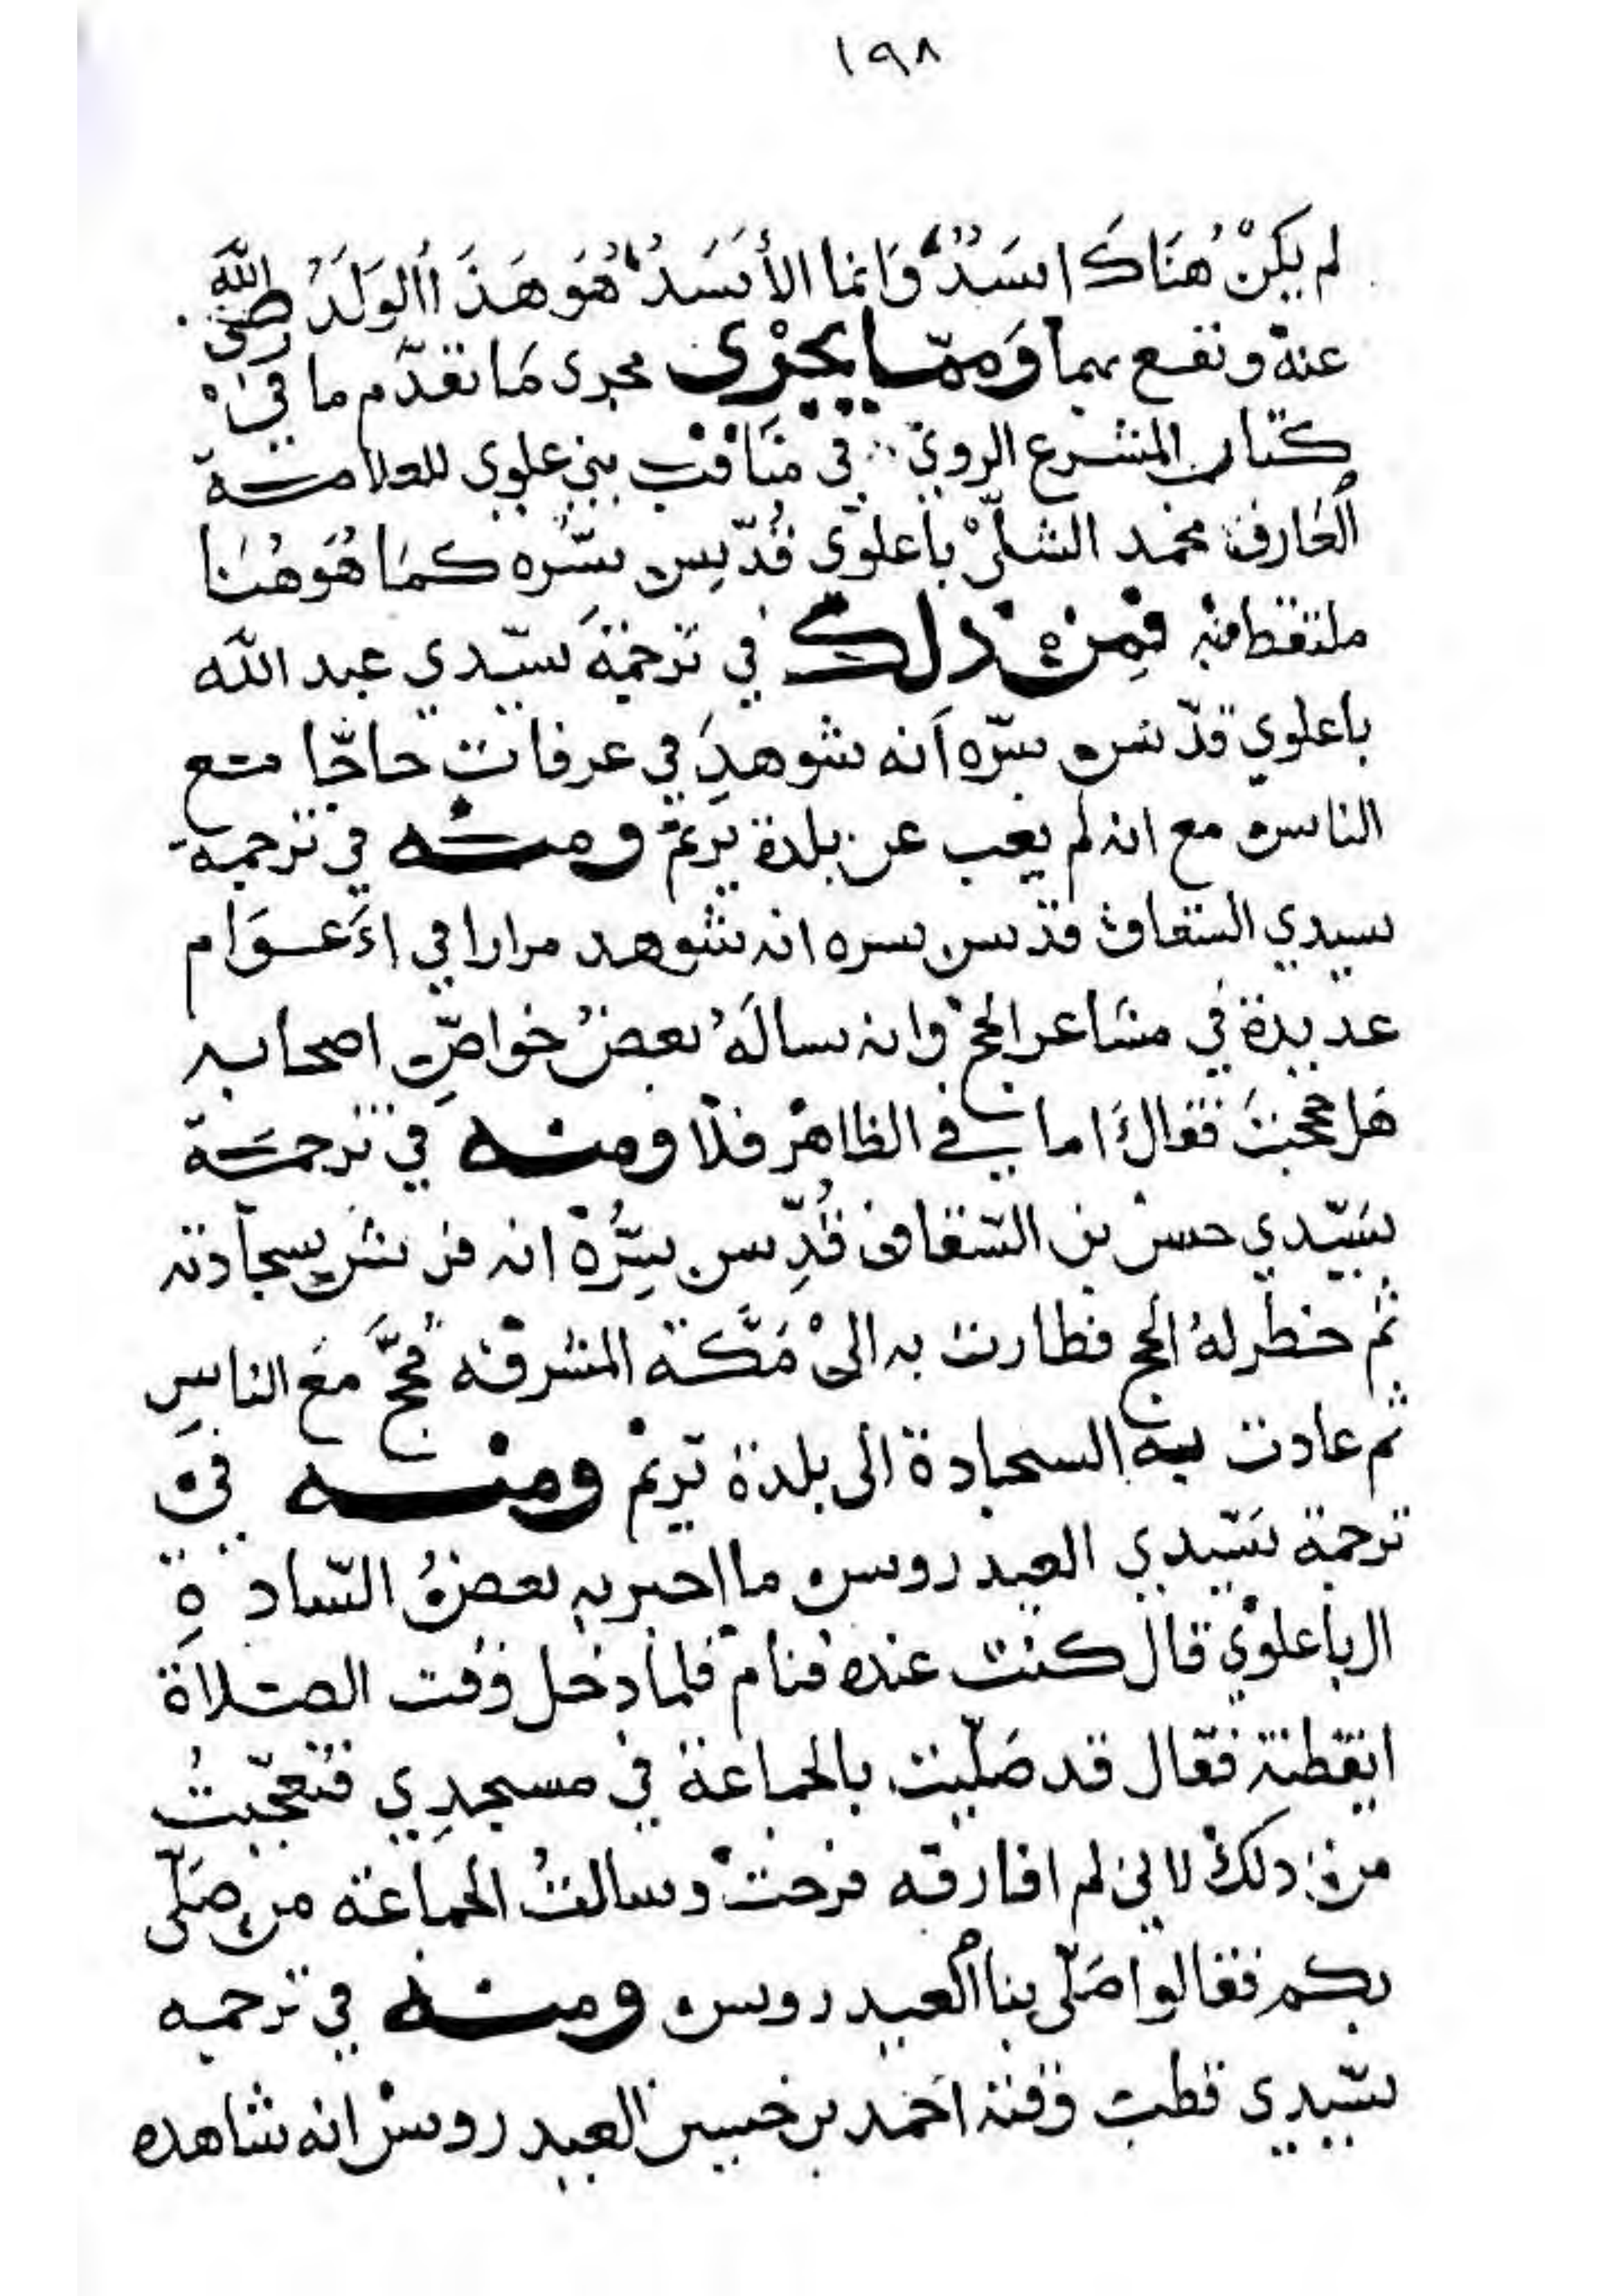 ١٩٨
لم يَكُنْ هُنَاكَ اسَدٌ وَانما الأسَدُ هُوَ هَذَا الوَلَدُ رضى اللّٰه
عنهْ ونفع بهما وَممّا يجْرى مجرى مَا تقدّم ما فِىْ
كتاب المشرع الروىّ في مَنَاقب بنِي علوي للعلامة
الْعَارف محمد الشلّىْ باعلوّي قُدّس سّره كمَا هُوَ هُنا
ملتقطا منه فمِنْ ذلك في ترجمَة سَيّدي عبد اللّٰه
باعلوي قدّ س سّره اَنه شوهدَِ في عرفات حاجّا مع
الناس مع انه لم يغب عن بلدة تَريمْ ومنْه في ترجمة
سيدي السقاف قدّ س سره انه شوهد مرارا في اَعوَام
عديدة في مشَاعر الحج وانه سالَهُ بعضُ خواصِّ اصحابه
هَل حججتَ فقالَ اما في الظاهرْ فلاَ ومنه في ترجمَة
سَيّدي حسن بن السّقاف قُدِّ س سِرُّهْ انه فرشَ سجاّدته
ثم خطَر لهُ الحج فطارت به الىْ مَكَّة المشرفه فحجَّ مَع الناسِ
ثم عادت به السجادة الى بلدة تريْم ومنْه فىْ
ترجمة سَيّدي العيد روس ما اخبر به بعضُ السّاد ةِ
ال باعلوْي قال كنت عنده فنامْ فلما دخل وَقت الصّلاَة
ايقظته فقال قد صَلّيت بالجماعة في مسجدِي فتعجّبتُ
من ذلكْ لاني لم افارقه فرحتْ وسالتُ الجماعة من صَلّى
بكم فقالوا صَلّى بنا الْعيد روس ومنه في ترجمه
سَيّدي قطب وَقته اَحمد بن حسين العيد روسْ انه شاهده